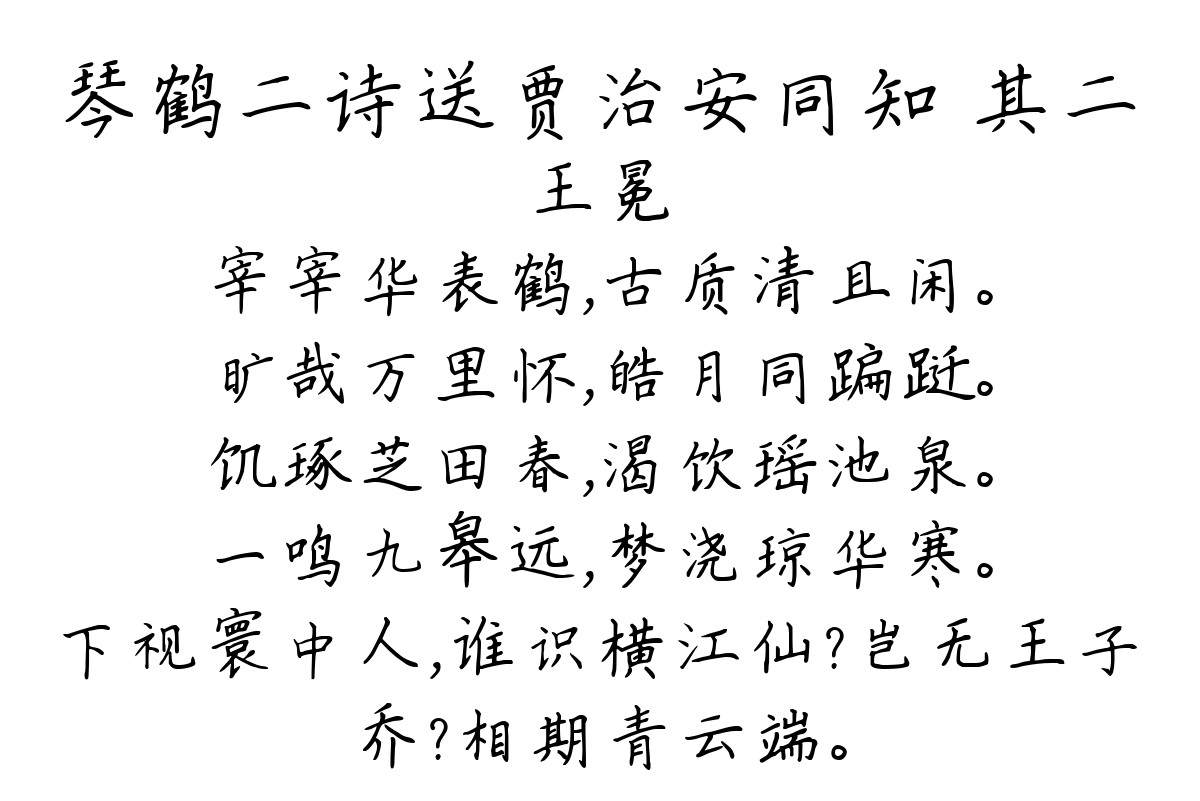 琴鹤二诗送贾治安同知 其二
王冕
宰宰华表鹤,古质清且闲。
旷哉万里怀,皓月同蹁跹。
饥琢芝田春,渴饮瑶池泉。
一鸣九皋远,梦浇琼华寒。
下视寰中人,谁识横江仙?岂无王子
乔?相期青云端。